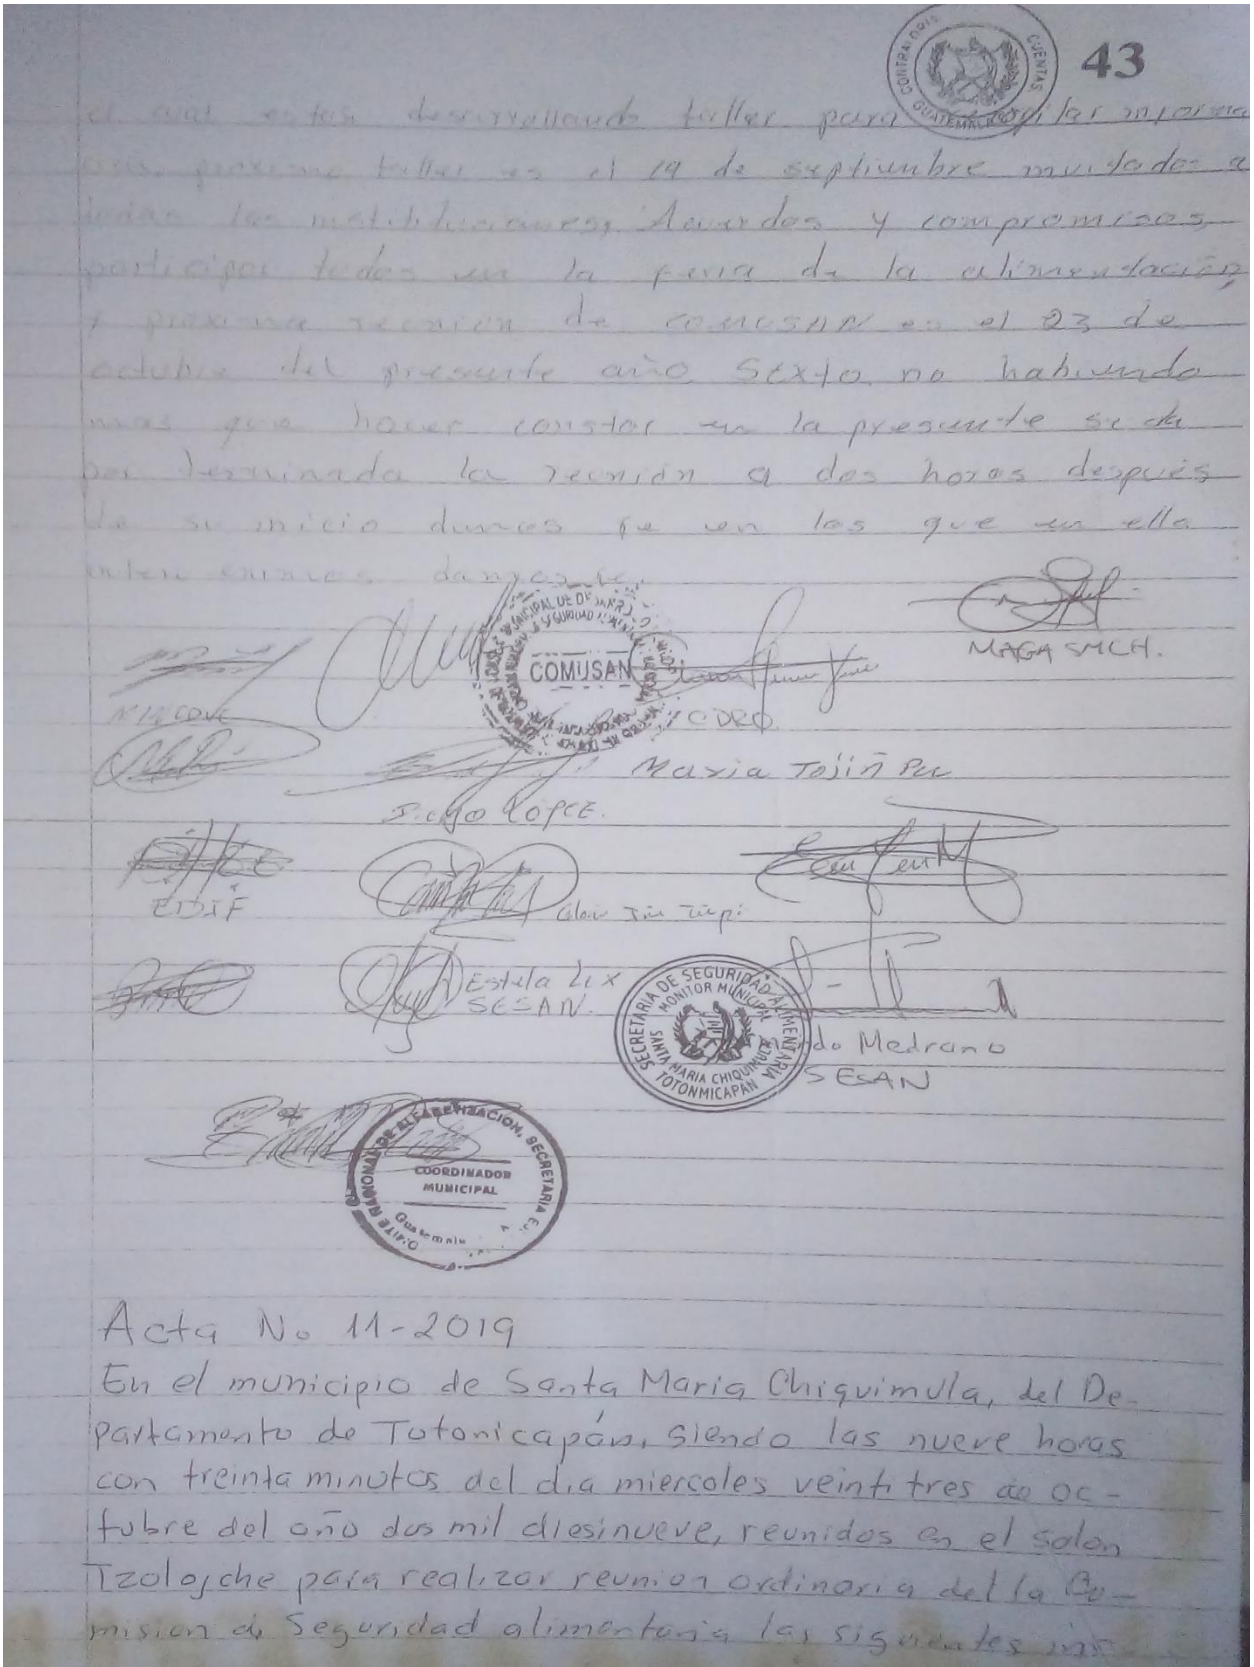 43
CONTRALORIA CUENTAS GUATEMALA
el cual estan desarrollando taller para informa
proximo taller es el 19 de septiembre invitados a
todas las Acuerdos y compromisos
participar todos en la feria de la alimentación
y proxima reunión de COMUSAN es el 23 de
octubre del presente año Sexto no habiendo
mas que hacer constar en la presente se da
por terminada la reunión a dos horas después
de su inicio damos fe en los que en ella
damos fe.
COMUSAN
MAGA SMCH.
CDRO
Maria Tojin Puc
LOPEZ.
EDIF
Estela Lux
SESAN.
SECRETARIA DE SEGURIDAD ALIMENTARIA
MONITOR MUNICIPAL
SANTA MARIA CHIQUIMULA
TOTONICAPAN
Medrano
SESAN
NACIONAL DE ALFABETIZACION, SECRETARIA EJ.
COORDINADOR
MUNICIPAL
Guatemala
Acta No 11-2019
En el municipio de Santa Maria Chiquimula, del De-
partamento de Totonicapán, siendo las nueve horas
con treinta minutos del dia miercoles veintitres de oc-
tubre del año dos mil diesinueve, reunidos en el salon
Tzolojche para realizar reunion ordinaria del la Co-
mision de Seguridad alimentaria las siguientes